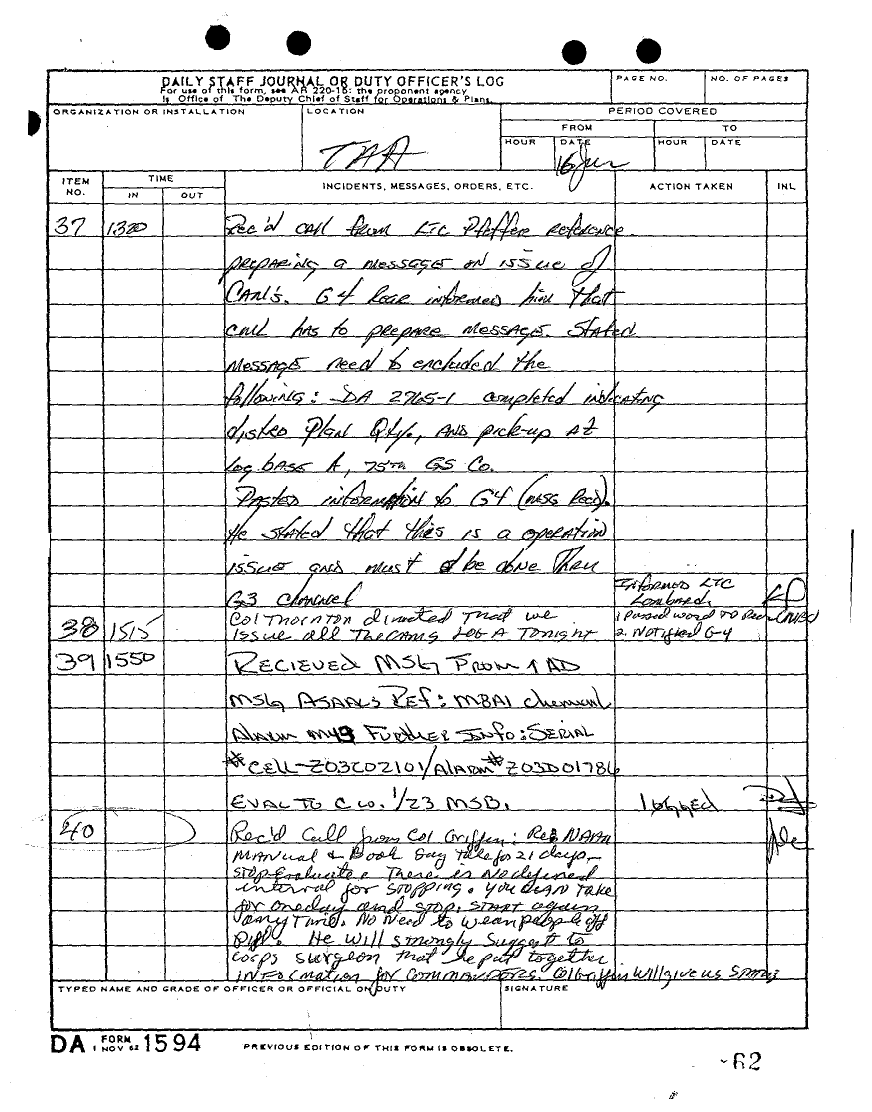 DAILY STAFF JOURNAL OR DUTY OFFICER'S LOG
For use of this form, see AR 220-15; the proponent agency
is Office of The Deputy Chief of Staff for Operations & Plans.
PAGE NO.
NO. OF PAGES
ORGANIZATION OR INSTALLATION
LOCATION
TAA
PERIOD COVERED
FROM
TO
HOUR
DATE
16 Jan
HOUR
DATE
ITEM NO.
TIME
IN
OUT
INCIDENTS, MESSAGES, ORDERS, ETC.
ACTION TAKEN
INL
37 1320 Rec'd call from LTC Pfeffer reference
preparing a message on issue of
CANA's. G4 Rear informed him that
call has to prepare message. Stated
message need to encluded the
following: DA 2765-1 completed indicating
distro Plan Qty., and pick-up at
Log base A, 75th GS Co.
Passed information to G4 (msg Rec).
He stated that this is a operation
issue and must be done thru
G3 channel
Informed LTC
Lombard.
38 1515 Col Thornton directed that we
issue all The CANAs LOG A Tonight
1 Passed word TO
2. Notified G-4
39 1550 RECIEVED MSG FROM 1 AD
MSG ASAALS REF: M8A1 chemical
Alarm M43 FURTHER INFO: SERIAL
#CELL-Z03C02101/Alarm #Z03D01786
EVAL TO C Co. 1/23 MSB.
logged
40 Rec'd Call from Col Griffin: Re: NAPP
MANUAL & Book Say take for 21 days -
STOP-Evaluate. There is No defined
interval for stopping. You can take
for one day and stop, start again
any time. No Need to wean people off
Pill. He will strongly suggest to
corps surgeon that he put together
INFORMATION for Commanders. Col Griffin will give us
TYPED NAME AND GRADE OF OFFICER OR OFFICIAL ON DUTY
SIGNATURE
DA FORM 1 NOV 62 1594
PREVIOUS EDITION OF THIS FORM IS OBSOLETE.
-62